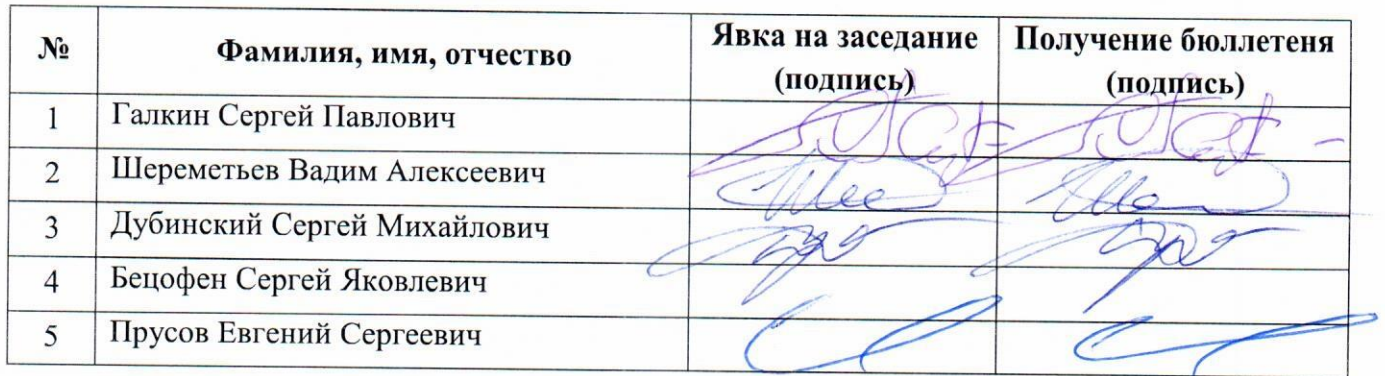 № Фамилия, имя, отчество Явка на заседание (подпись) Получение бюллетеня (подпись)
1 Галкин Сергей Павлович
2 Шереметьев Вадим Алексеевич
3 Дубинский Сергей Михайлович
4 Бецофен Сергей Яковлевич
5 Прусов Евгений Сергеевич